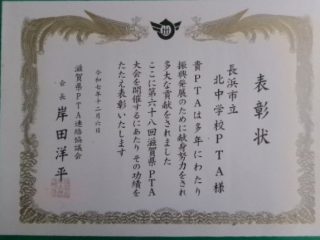 表彰状
長浜市立
北中学校PTA様
貴PTAは多年にわたり
振興発展のために献身努力をされ
多大な貢献をされました
ここに第六十八回滋賀県PTA
大会を開催するにあたり その功績を
たたえ表彰いたします
令和七年十二月六日
滋賀県PTA連絡協議会
会長 岸田洋平